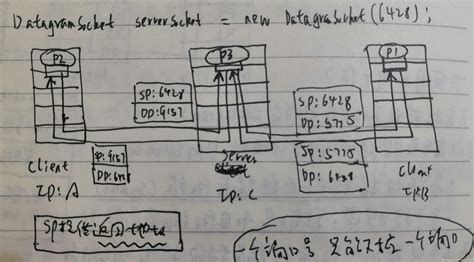 DatagramSocket serverSocket = new DatagramSocket(6428);
P2
P3
P1
SP:6428
DP:9157
SP:6428
DP:5775
SP:9157
DP:6428
SP:5775
DP:6428
Client
IP:A
Server
IP:C
Client
IP:B
SP提供返回
一个端口号 只能对应一个